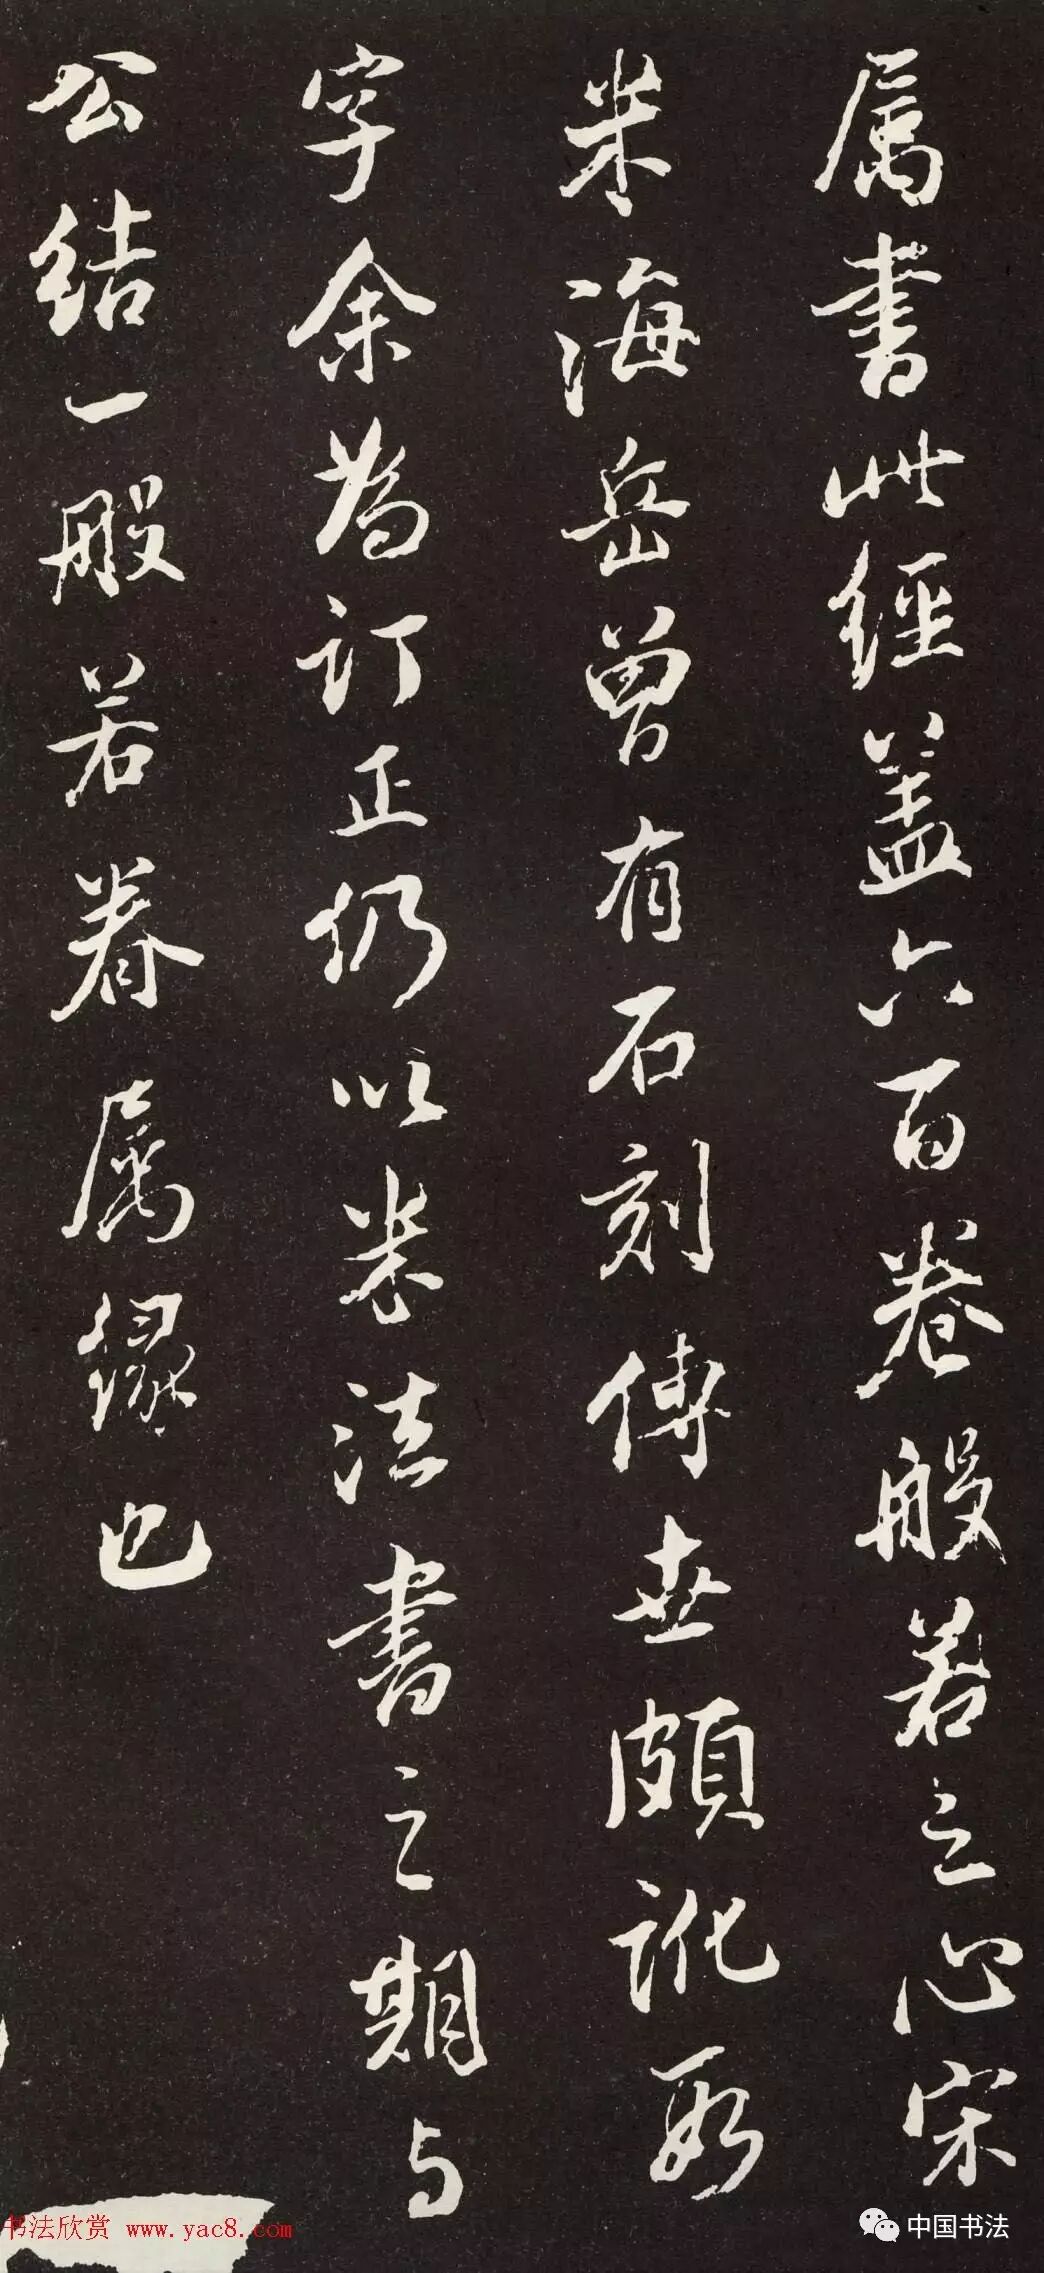 属書此經蓋六百卷般若之心宋
米海岳曾有石刻傳世頗訛數
字余為訂正仍以米法書之期与
公結一般若眷属緣也
书法欣赏 www.yac8.com
中国书法